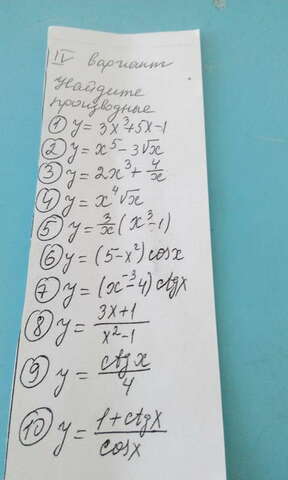 IV вариант
Найдите
производные
① y = 3x³+5x-1
② y = x⁵-3√x
③ y = 2x³+ 4/x
④ y = x⁴√x
⑤ y = 3/x (x³-1)
⑥ y = (5-x²) cosx
⑦ y = (x⁻³-4) ctgx
⑧ y = (3x+1)/(x²-1)
⑨ y = ctgx/4
⑩ y = (1+ctgx)/cosx